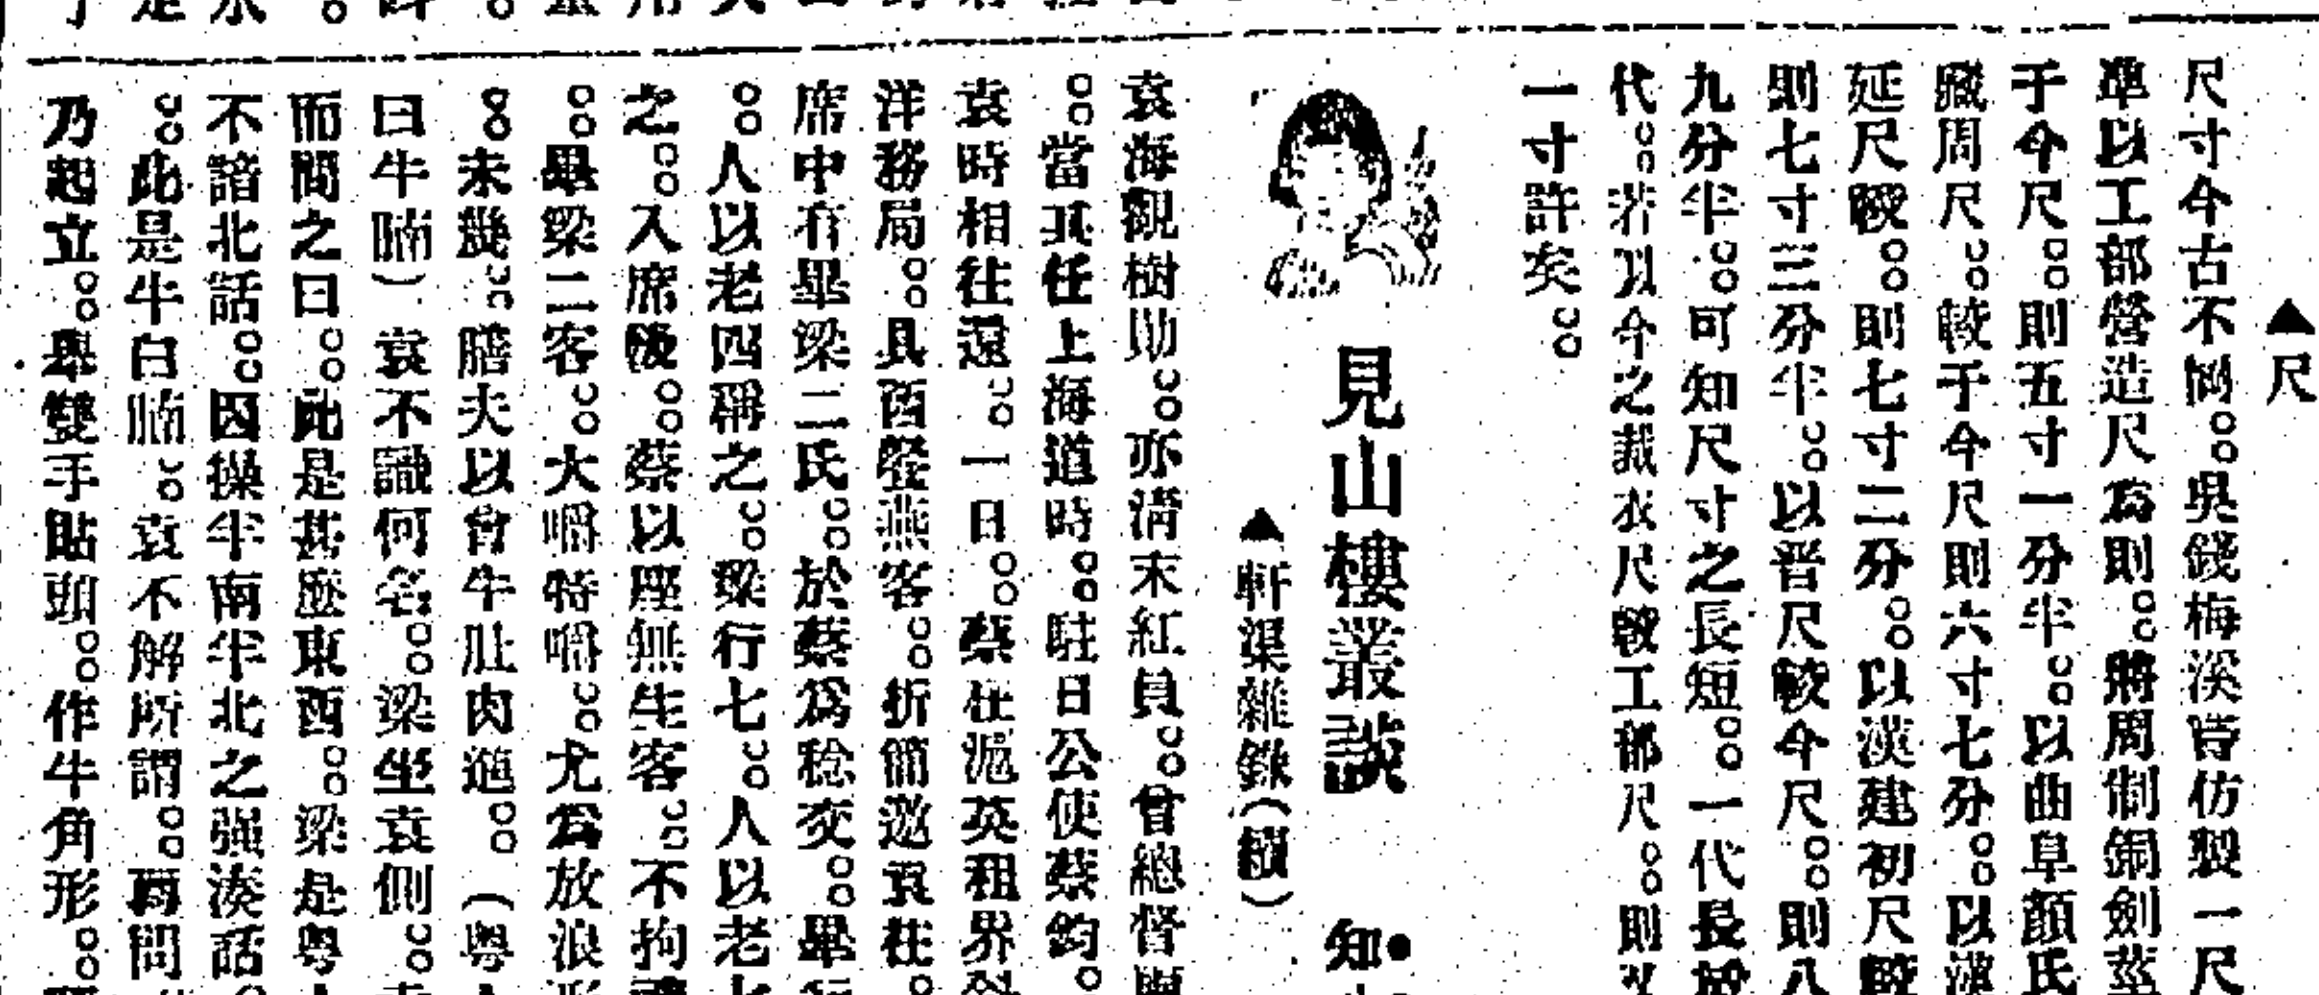 ▲尺
尺寸今古不同。。吳錢梅溪嘗仿製一尺
準以工部營造尺爲則。。將周制銅劍莖
于今尺。。則五寸一分半。。以曲阜顏氏
藏周尺。。較于今尺則六寸七分。。以漢
延尺較。。則七寸二分。。以漢建初尺較
則七寸三分半。。以晋尺較今尺。。則八
九分半。。可知尺寸之長短。。一代長
代。。若以今之裁衣尺較工部尺。。則又
一寸許矣。。
見山樓叢談 知
▲軒渠雜錄(續)
袁海觀樹勛。。亦淸末紅員。。曾總督
。。當其任上海道時。。駐日公使蔡鈞。
袁時相往還。。一日。。蔡在滬英租界
洋務局。。具西餐燕客。。折簡邀袁往。
席中有畢梁二氏。。於蔡爲稔交。。畢行
。。人以老四稱之。。梁行七。。人以老七
之。。入席後。。蔡以座無生客。。不拘
。。畢梁二客。。大嚼特嚼。。尤爲放浪
。。未幾。。膳夫以會牛肚肉進。。(粤
曰牛腩)袁不識何名。。梁坐袁側。。
而問之曰。。此是甚麽東西。。梁是粤
不諳北話。。因操半南半北之强湊話。
。。此是牛白腩。。袁不解所謂。。再問
乃起立。。舉雙手貼頭。。作牛角形。。